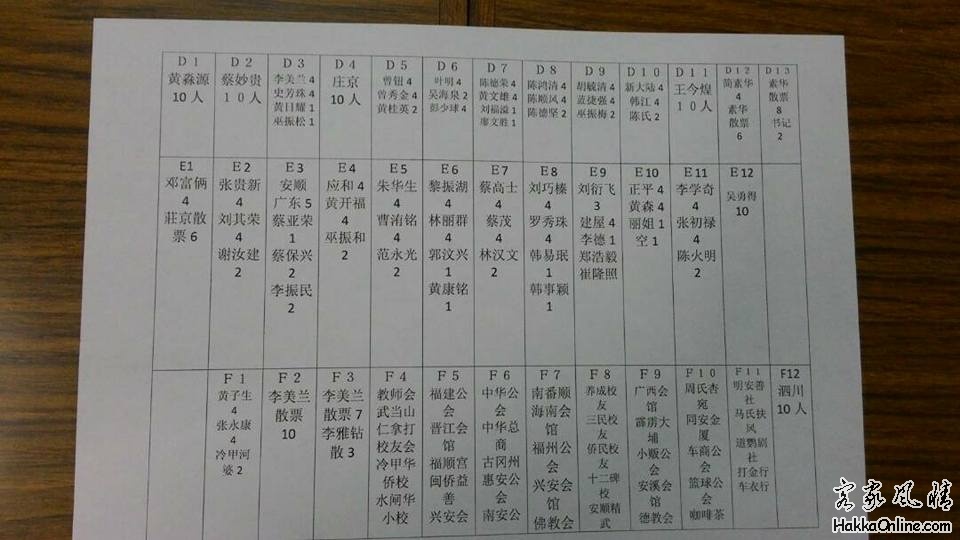 D 1
黄淼源
10 人
D 2
蔡妙贵
1 0 人
D 3
李美兰 4
史芳姝 4
黄日耀 1
巫振松 1
D 4
庄京
10 人
D 5
曾钮 4
曾秀金 4
黄桂英 2
D 6
叶明 4
吴海泉 2
彭少球 4
D 7
陈德荣 4
黄文雄 4
刘福溢 1
廖文胜 1
D 8
陈鸿清 4
陈顺风 4
陈德坚 2
D 9
胡毓清 4
蓝捷强 4
巫振梅 2
D 1 0
新大陆 4
韩江 4
陈氏 2
D 1 1
王今煌
1 0 人
D 1 2
简素华
4
素华
散票
6
D 1 3
素华
散票
8
书记
2
E1
邓富俩
4
莊京散
票 6
E 2
张贵新
4
刘其荣
4
谢汝建
2
E 3
安顺
广东 5
蔡亚荣
1
蔡保兴
2
李振民
2
E 4
应和 4
黄开福
4
巫振和
2
E5
朱华生
4
曹洧铭
4
范永光
2
E 6
黎振湖
4
林丽群
4
郭汶兴
1
黄康铭
1
E7
蔡高士
4
蔡茂
4
林汉文
2
E 8
刘巧榛
4
罗秀珠
4
韩易珉
1
韩事颖
1
E9
刘衍飞
3
建屋 4
李德 1
郑浩毅
崔隆照
E 10
正平 4
黄森 4
丽姐 1
空 1
E11
李学奇
4
张初禄
4
陈火明
2
E12
吴勇得
10
F 1
黄子生
4
张永康
4
冷甲河
婆 2
F 2
李美兰
散票
10
F 3
李美兰
散票 7
李雅钻
散 3
F 4
教师会
武当山
仁拿打
校友会
冷甲华
侨校
水闸华
小校
F 5
福建公
会
晋江会
馆
福顺宫
闽侨益
善
兴安会
F 6
中华公
会
中华总
商
古冈州
惠安公
会
南安公
F 7
南番顺
海南会
馆
福州公
会
兴安会
馆
佛教会
F 8
养成校
友
三民校
友
侨民校
友
十二碑
校
安顺精
武
F 9
广西会
馆
霹雳大
埔
小贩公
会
安溪会
馆
德教会
F 1 0
周氏杏
宛
同安金
厦
车商公
会
篮球公
会
咖啡茶
F 1 1
明安善
社
马氏扶
风
道鹦剧
社
打金行
车衣行
F12
泗川
10 人
客家风情
HakkaOnline.com